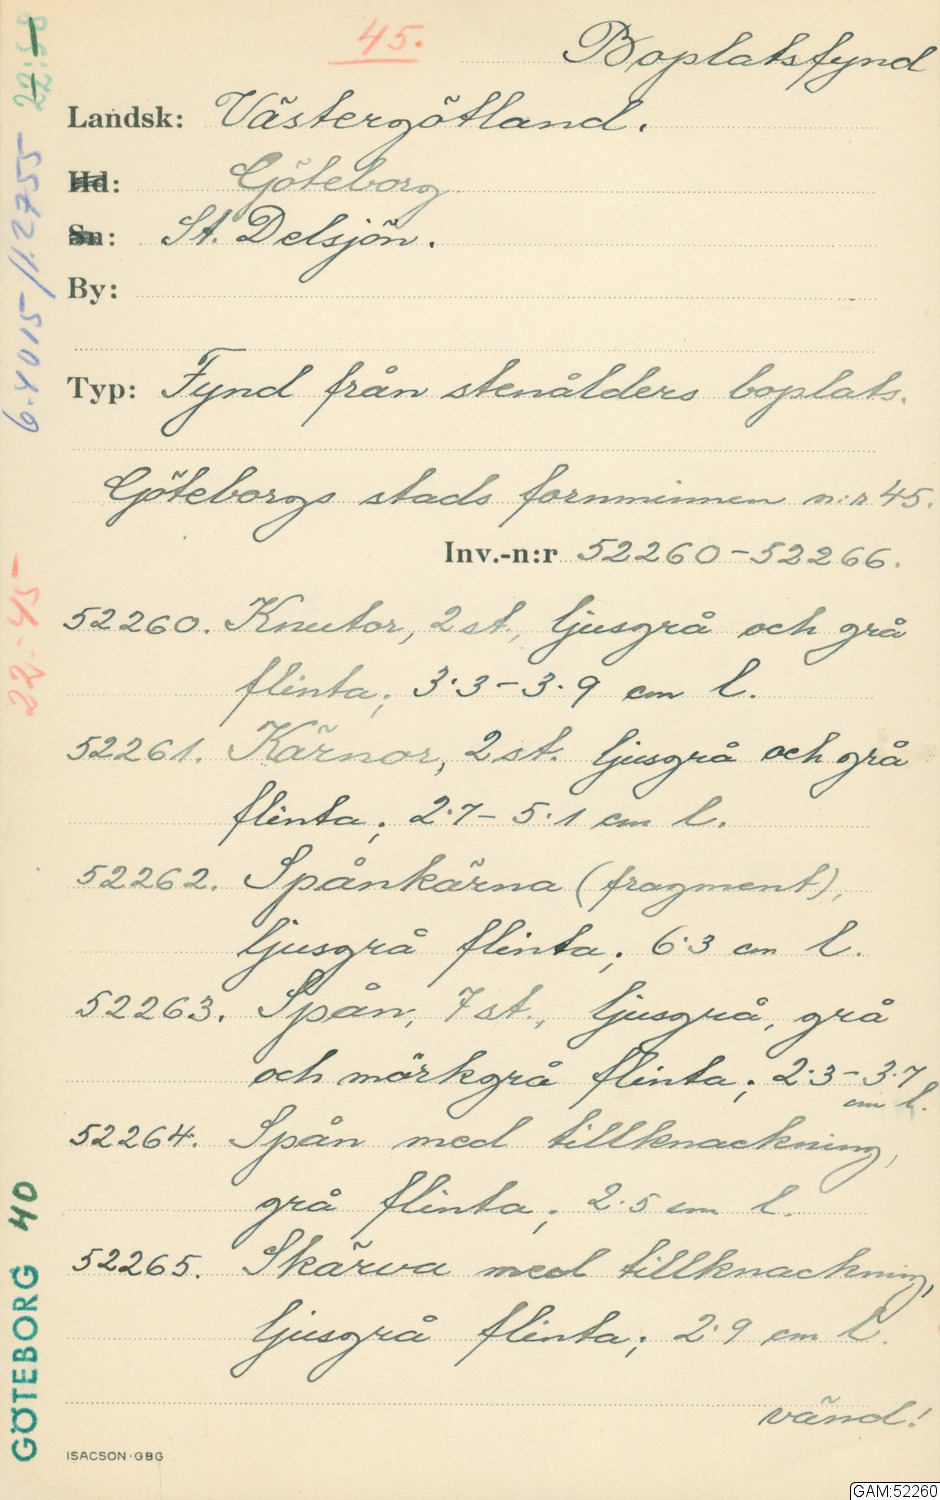 45.
Boplatsfynd
Landsk: Västergötland.
Hd: Göteborg
Sn: St. Delsjön.
By:
Typ: Fynd från stenålders boplats.
Göteborgs stads fornminnen n:r 45.
Inv.-n:r 52260-52266.
52260. Knutor, 2 st., ljusgrå och grå
flinta; 3.3-3.9 cm l.
52261. Kärnor, 2 st. ljusgrå och grå
flinta; 2.7-5.1 cm l.
52262. Spånkärna (fragment),
ljusgrå flinta; 6.3 cm l.
52263. Spån, 7 st., ljusgrå, grå
och mörkgrå flinta; 2.3-3.7
cm l.
52264. Spån med tillknackning,
grå flinta; 2.5 cm l.
52265. Skärva med tillknackning,
ljusgrå flinta; 2.9 cm l.
vänd!
ISACSON·GBG
GÖTEBORG 40
22-45
GAM:52260